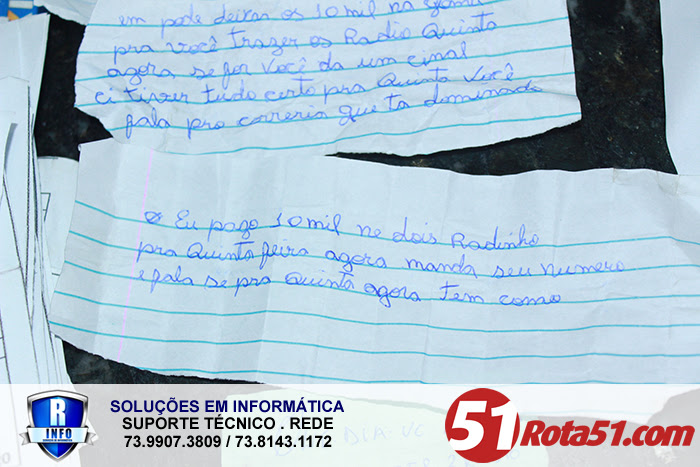 em pode deixar os 10 mil na
pra você trazer os Radio Quinta
agora se for você da um cinal
ci tiver tudo certo pra Quinta você
fala pro correria que ta dominado
Eu pago 10 mil ne dois Radinho
pra Quinta feira agora manda seu numero
e fala se pra Quinta agora tem como
R
INFO
SOLUÇÕES EM INFORMÁTICA
SUPORTE TÉCNICO . REDE
73.9907.3809 / 73.8143.1172
51 Rota51.com
DIA VC